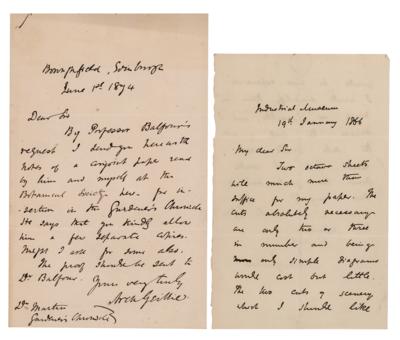 Edinburgh
June 1st 1874
Dear Sir
By Professor Balfour's
request I send you herewith
notes of a conjoint paper read
by him and myself at the
Botanical Society here for in-
sertion in the Gardener's Chronicle
He says that you kindly allow
him a few separate copies.
May I ask for some also.
The proof should be sent to
Dr Balfour.
Yours very truly
Arch Geikie
Dr Masters
Gardener's Chronicle
Industrial Museum
19th January 1866
My dear Sir
Two octavo sheets
will much more than
suffice for my paper. The
cuts absolutely necessary
are only two or three
in number and being
only simple diagrams
would cost but little.
The two cuts of scenery
which I should like